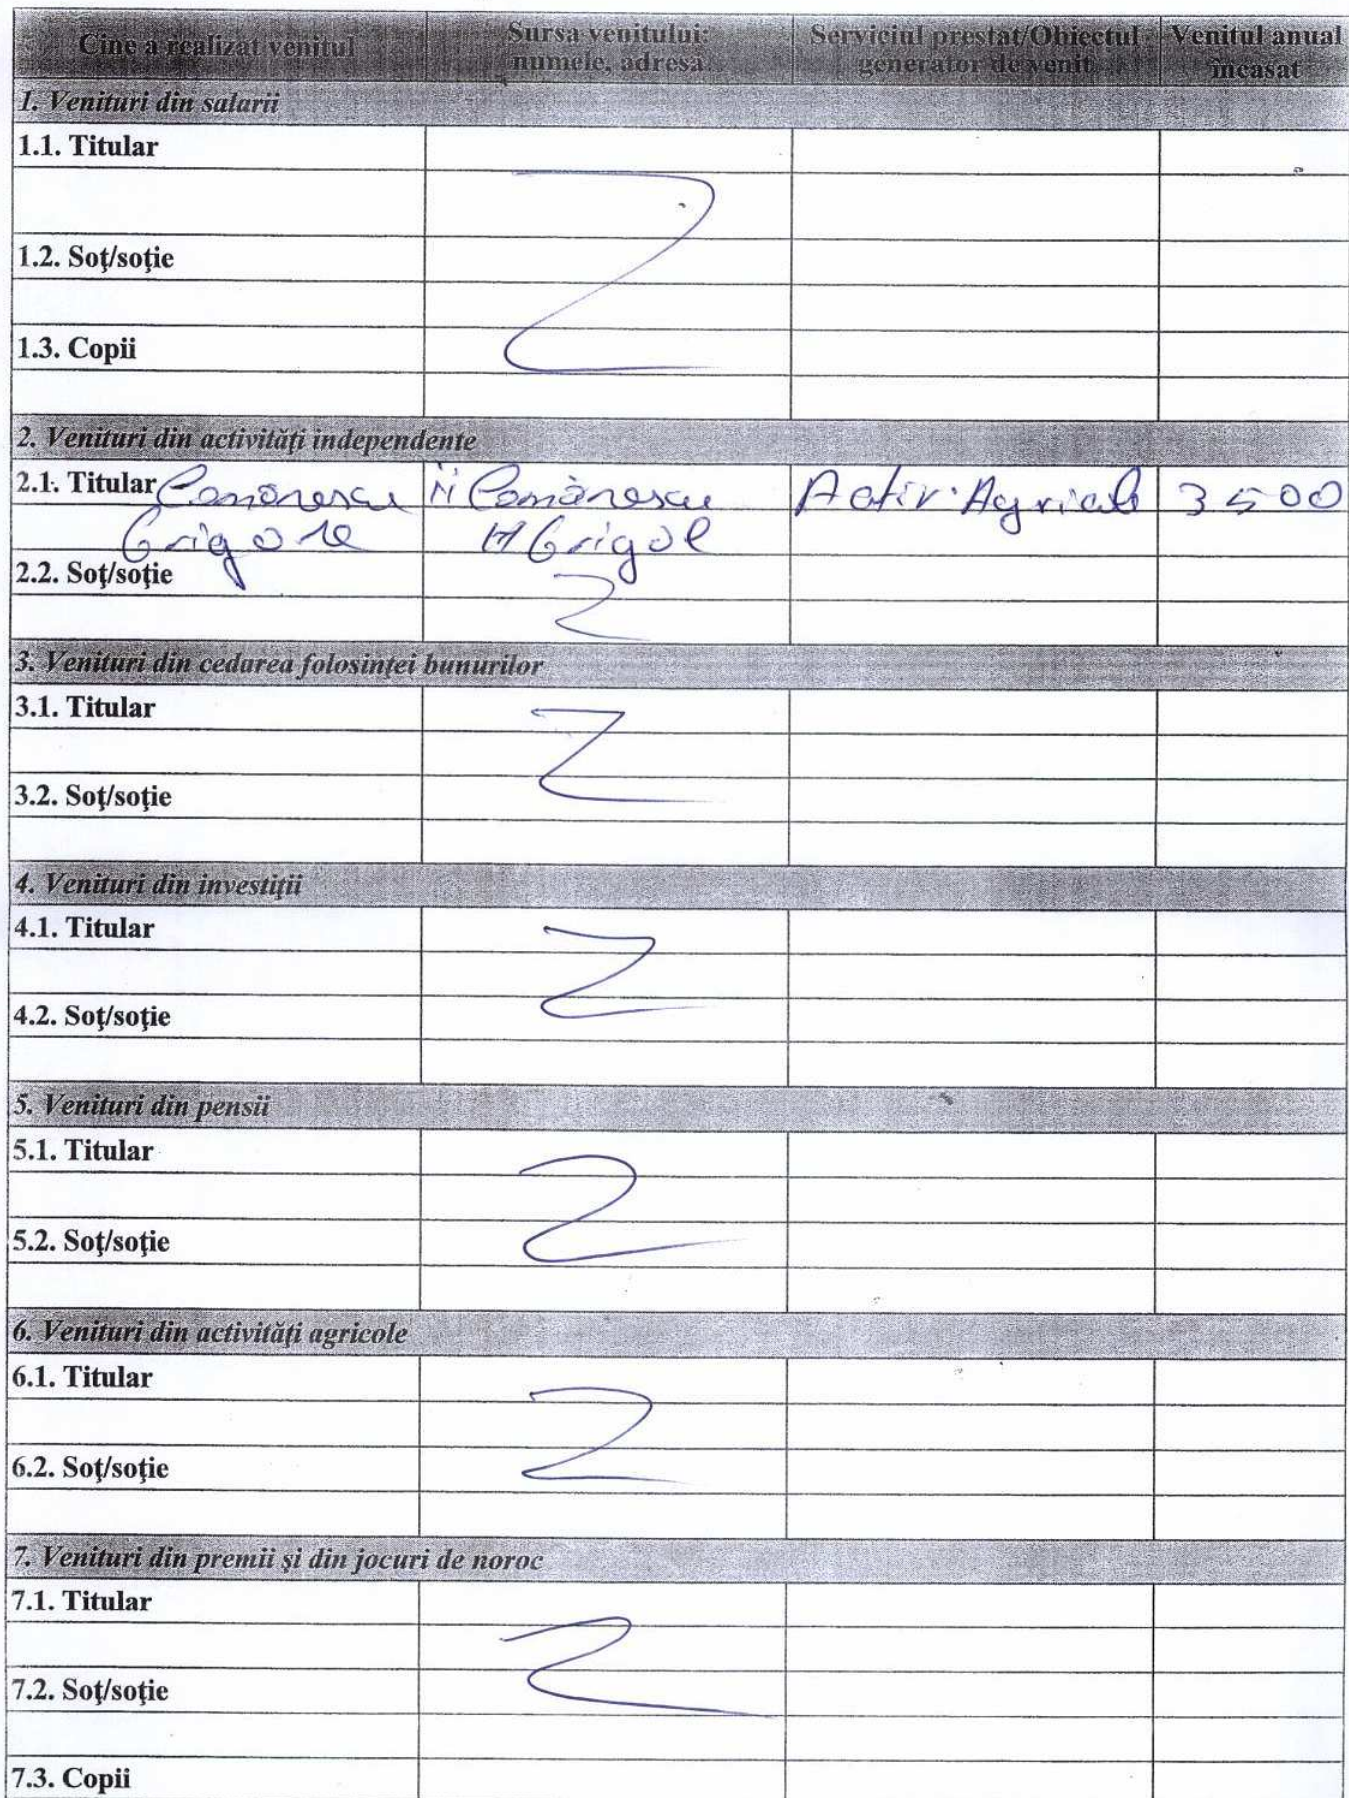 Cine a realizat venitul Sursa venitului: numele, adresa Serviciul prestat/Obiectul generator de venit Venitul anual încasat
1. Venituri din salarii
1.1. Titular
1.2. Soţ/soţie
1.3. Copii
2. Venituri din activităţi independente
2.1. Titular Comănescu Grigore ÎI Comănescu Grigore Activ. Agricole 3500
2.2. Soţ/soţie
3. Venituri din cedarea folosinţei bunurilor
3.1. Titular
3.2. Soţ/soţie
4. Venituri din investiţii
4.1. Titular
4.2. Soţ/soţie
5. Venituri din pensii
5.1. Titular
5.2. Soţ/soţie
6. Venituri din activităţi agricole
6.1. Titular
6.2. Soţ/soţie
7. Venituri din premii şi din jocuri de noroc
7.1. Titular
7.2. Soţ/soţie
7.3. Copii